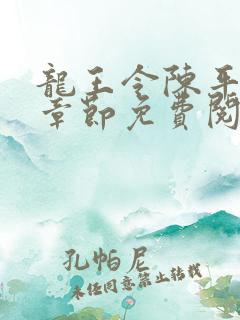 龍王令陳平
章節免費閱
孔帕尼
未经同意禁止转载